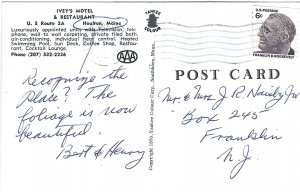 IVEY'S MOTEL
& RESTAURANT
U. S Route 2A Houlton, Maine
Luxuriously appointed units with television, telephone, wall to wall carpeting, private tiled bath, air-conditioning, individual heat control. Heated Swimming Pool, Sun Deck, Coffee Shop, Restaurant, Cocktail Lounge.
Phone (207) 532-2236
AAA
Recognize the
place? The
foliage is now
beautiful.
Bert & Henry
YANKEE
COLOUR
U.S. POSTAGE
6¢
FRANKLIN D. ROOSEVELT
POST CARD
Mr. & Mrs J. R.
Box 245
Franklin
N.J.